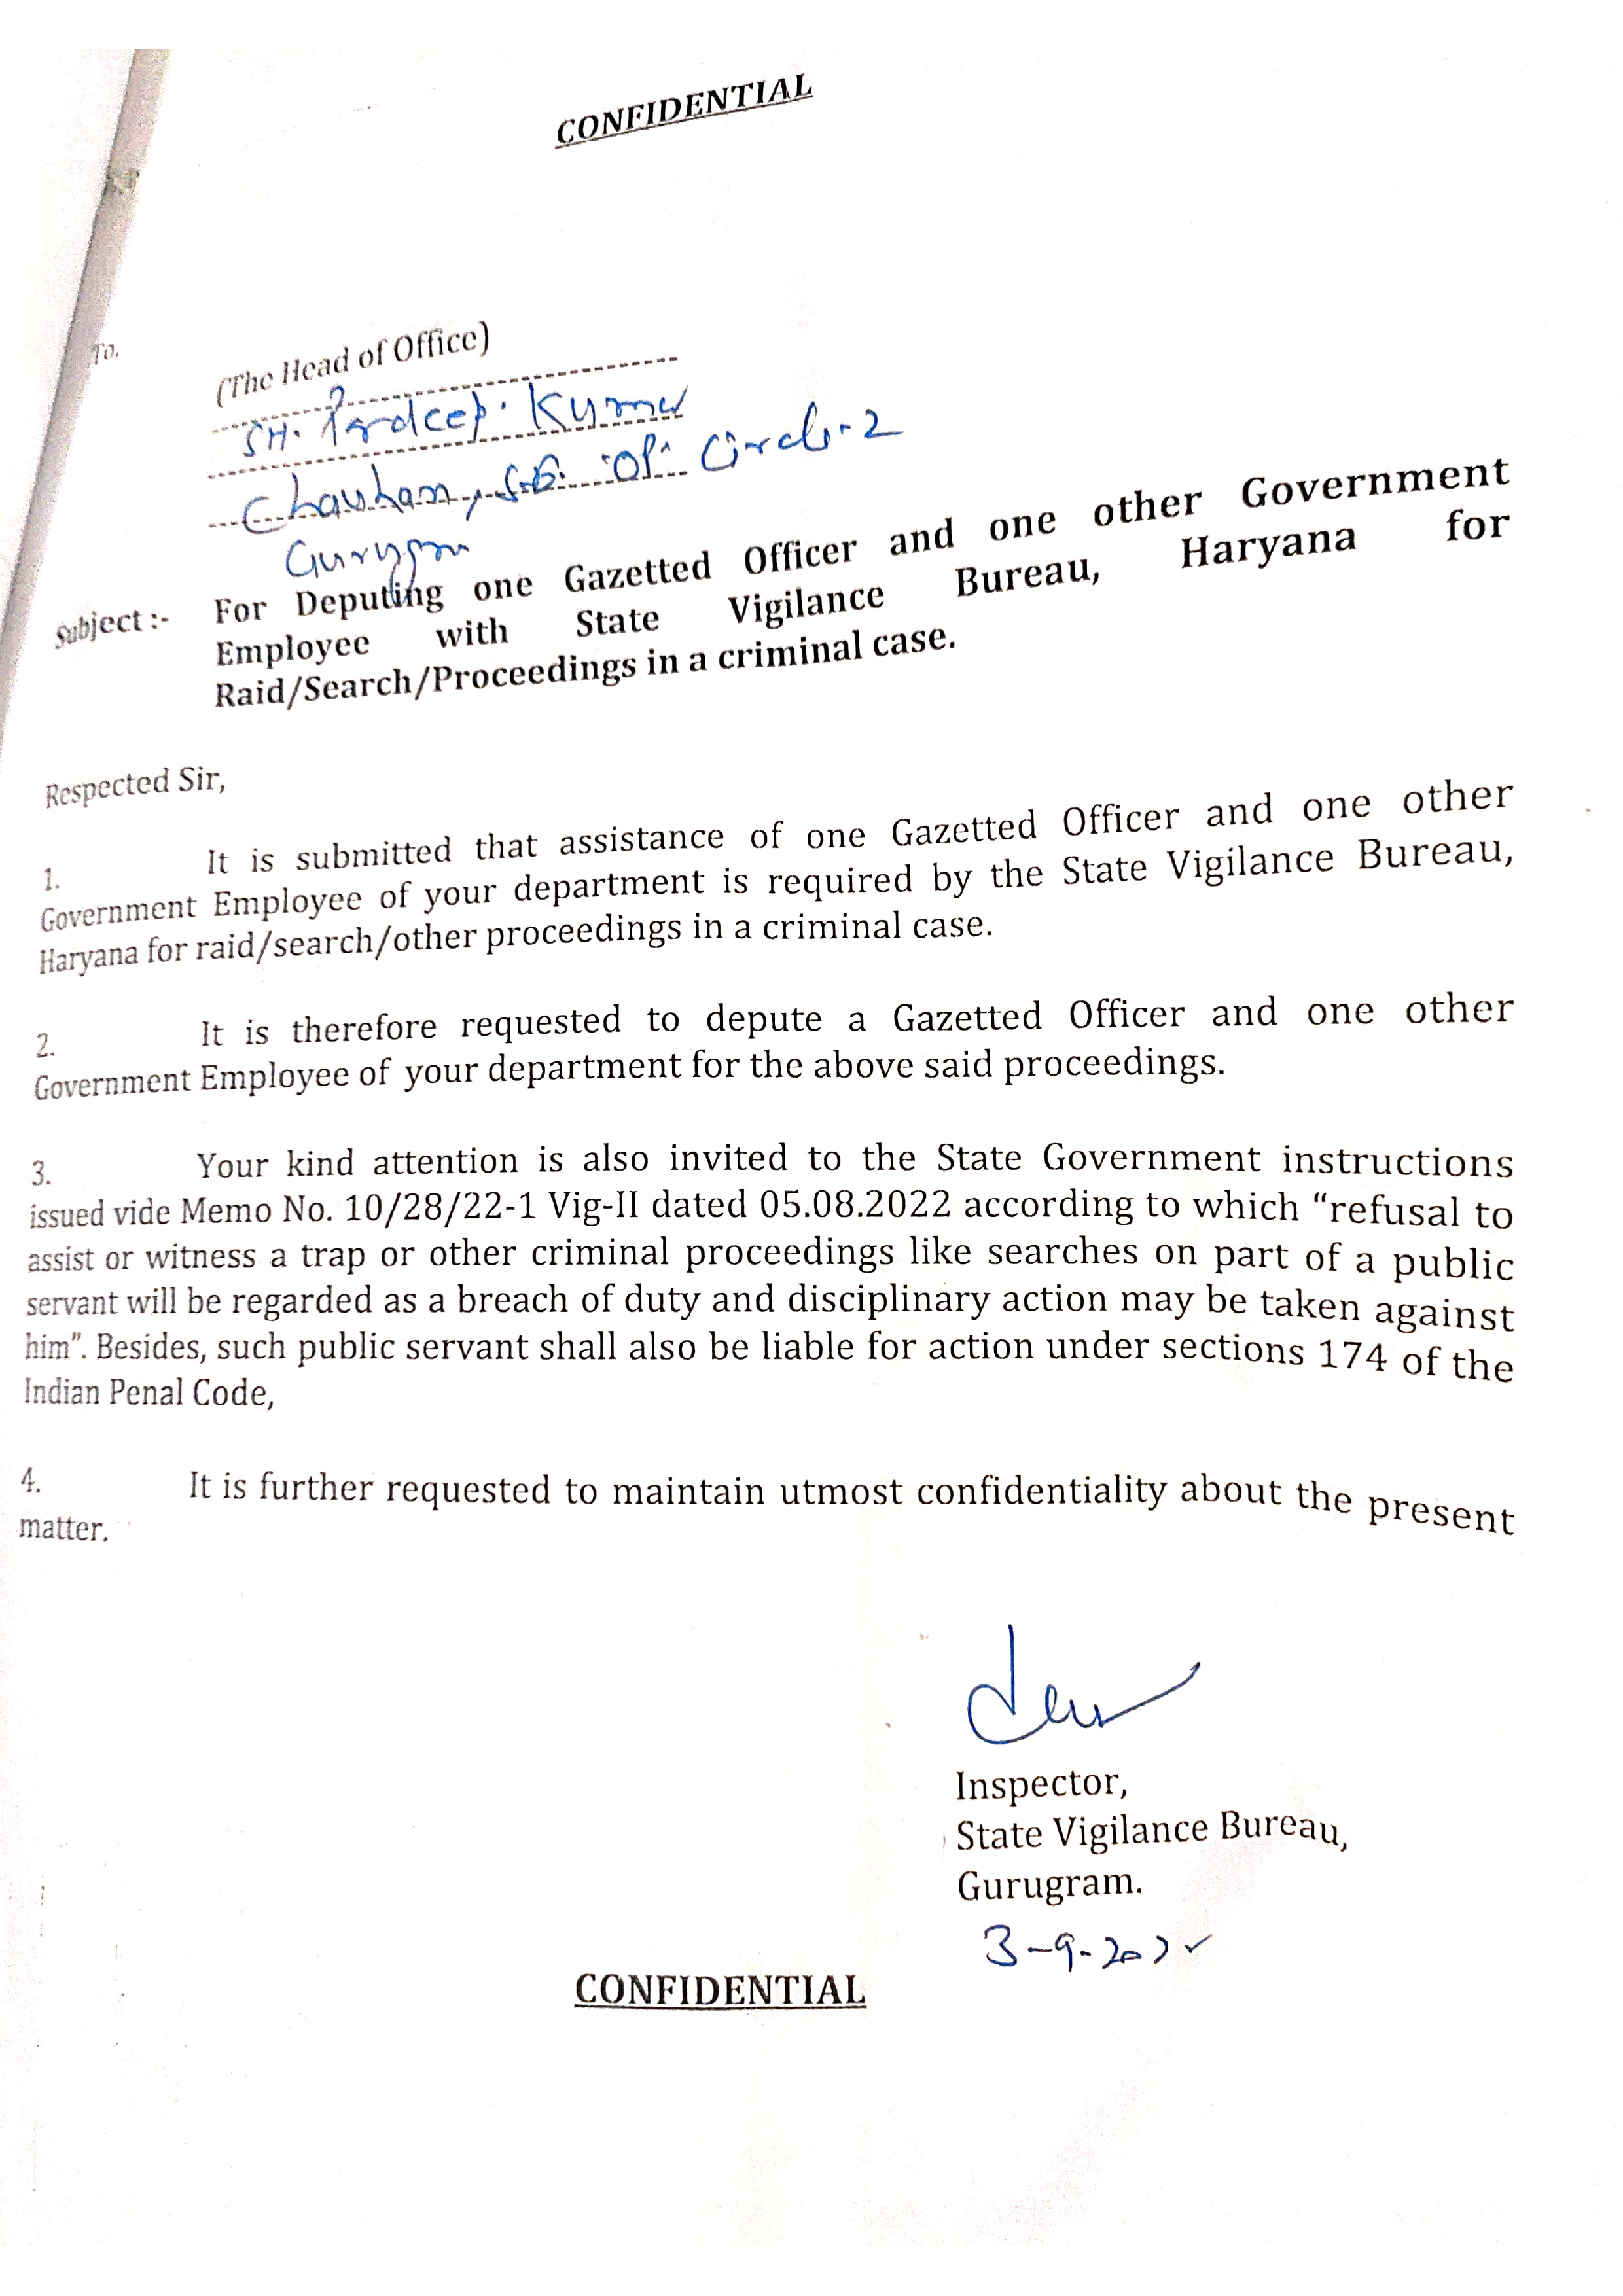 CONFIDENTIAL
To,
(The Head of Office)
SH. Pardeep Kumar
Chauhan, S.E. OP. Circle-2
Gurugram
Subject :- For Deputing one Gazetted Officer and one other Government
Employee with State Vigilance Bureau, Haryana for
Raid/Search/Proceedings in a criminal case.
Respected Sir,
1. It is submitted that assistance of one Gazetted Officer and one other
Government Employee of your department is required by the State Vigilance Bureau,
Haryana for raid/search/other proceedings in a criminal case.
2. It is therefore requested to depute a Gazetted Officer and one other
Government Employee of your department for the above said proceedings.
3. Your kind attention is also invited to the State Government instructions
issued vide Memo No. 10/28/22-1 Vig-II dated 05.08.2022 according to which “refusal to
assist or witness a trap or other criminal proceedings like searches on part of a public
servant will be regarded as a breach of duty and disciplinary action may be taken against
him”. Besides, such public servant shall also be liable for action under sections 174 of the
Indian Penal Code,
4. It is further requested to maintain utmost confidentiality about the present
matter.
Inspector,
State Vigilance Bureau,
Gurugram.
3-9-2022
CONFIDENTIAL